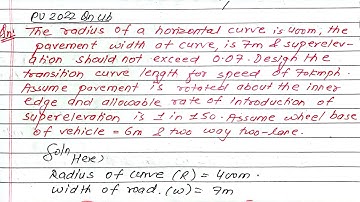 PU 2022 Qn.Ub
Qn: The radius of a horizontal curve is 400m, the
pavement width at curve, is 7m & superelev-
ation should not exceed 0.07. Design the
transition curve length for speed of 70kmph.
Assume pavement is rotated about the inner
edge and allowable rate of introduction of
superelevation is 1 in 150. Assume wheel base
of vehicle = 6m & two way two-lane.
Soln
Here,
Radius of curve (R) = 400m.
Width of road. (W) = 7m